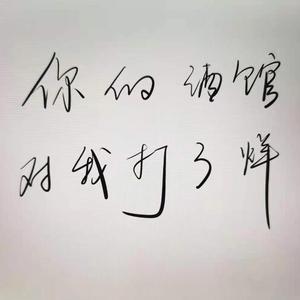 你的酒馆
对我打了烊